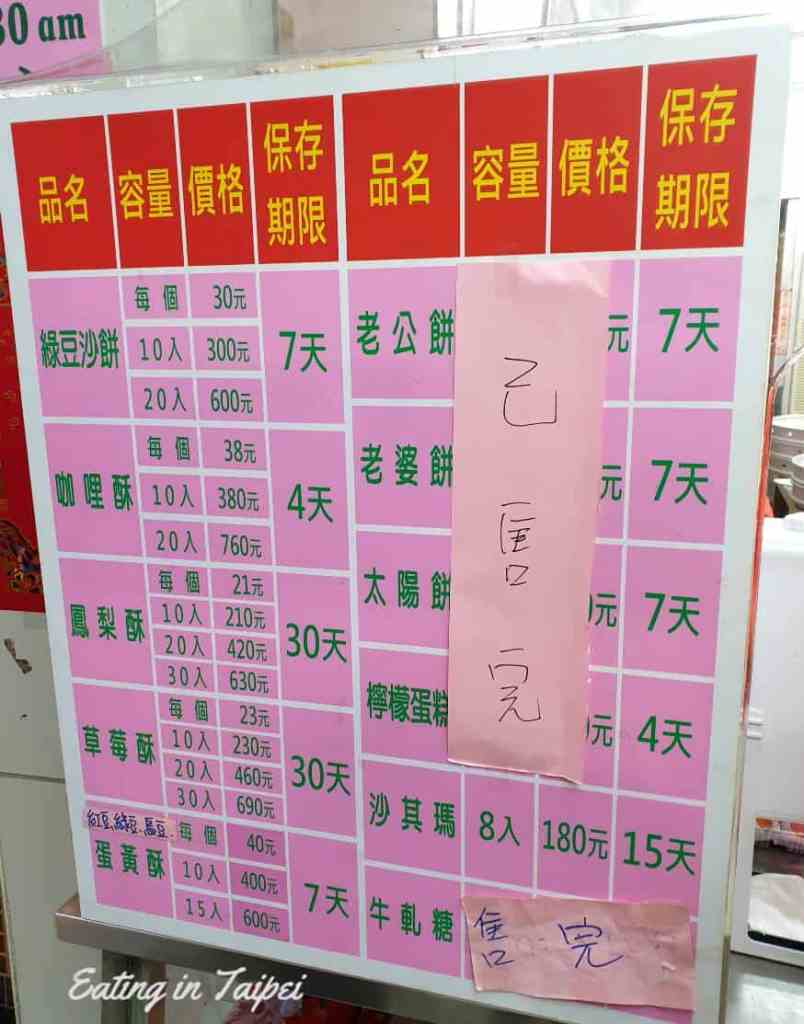 30 am
品名 容量 價格 保存期限 品名 容量 價格 保存期限
綠豆沙餅 每個 30元 7天
10入 300元
20入 600元
咖哩酥 每個 38元 4天
10入 380元
20入 760元
鳳梨酥 每個 21元 30天
10入 210元
20入 420元
30入 630元
草莓酥 每個 23元 30天
10入 230元
20入 460元
30入 690元
紅豆.綠豆.烏豆.
蛋黃酥 每個 40元 7天
10入 400元
15入 600元
老公餅 元 7天
老婆餅 元 7天
太陽餅 0元 7天
檸檬蛋糕 元 4天
已售完
沙其瑪 8入 180元 15天
牛軋糖 售完
Eating in Taipei